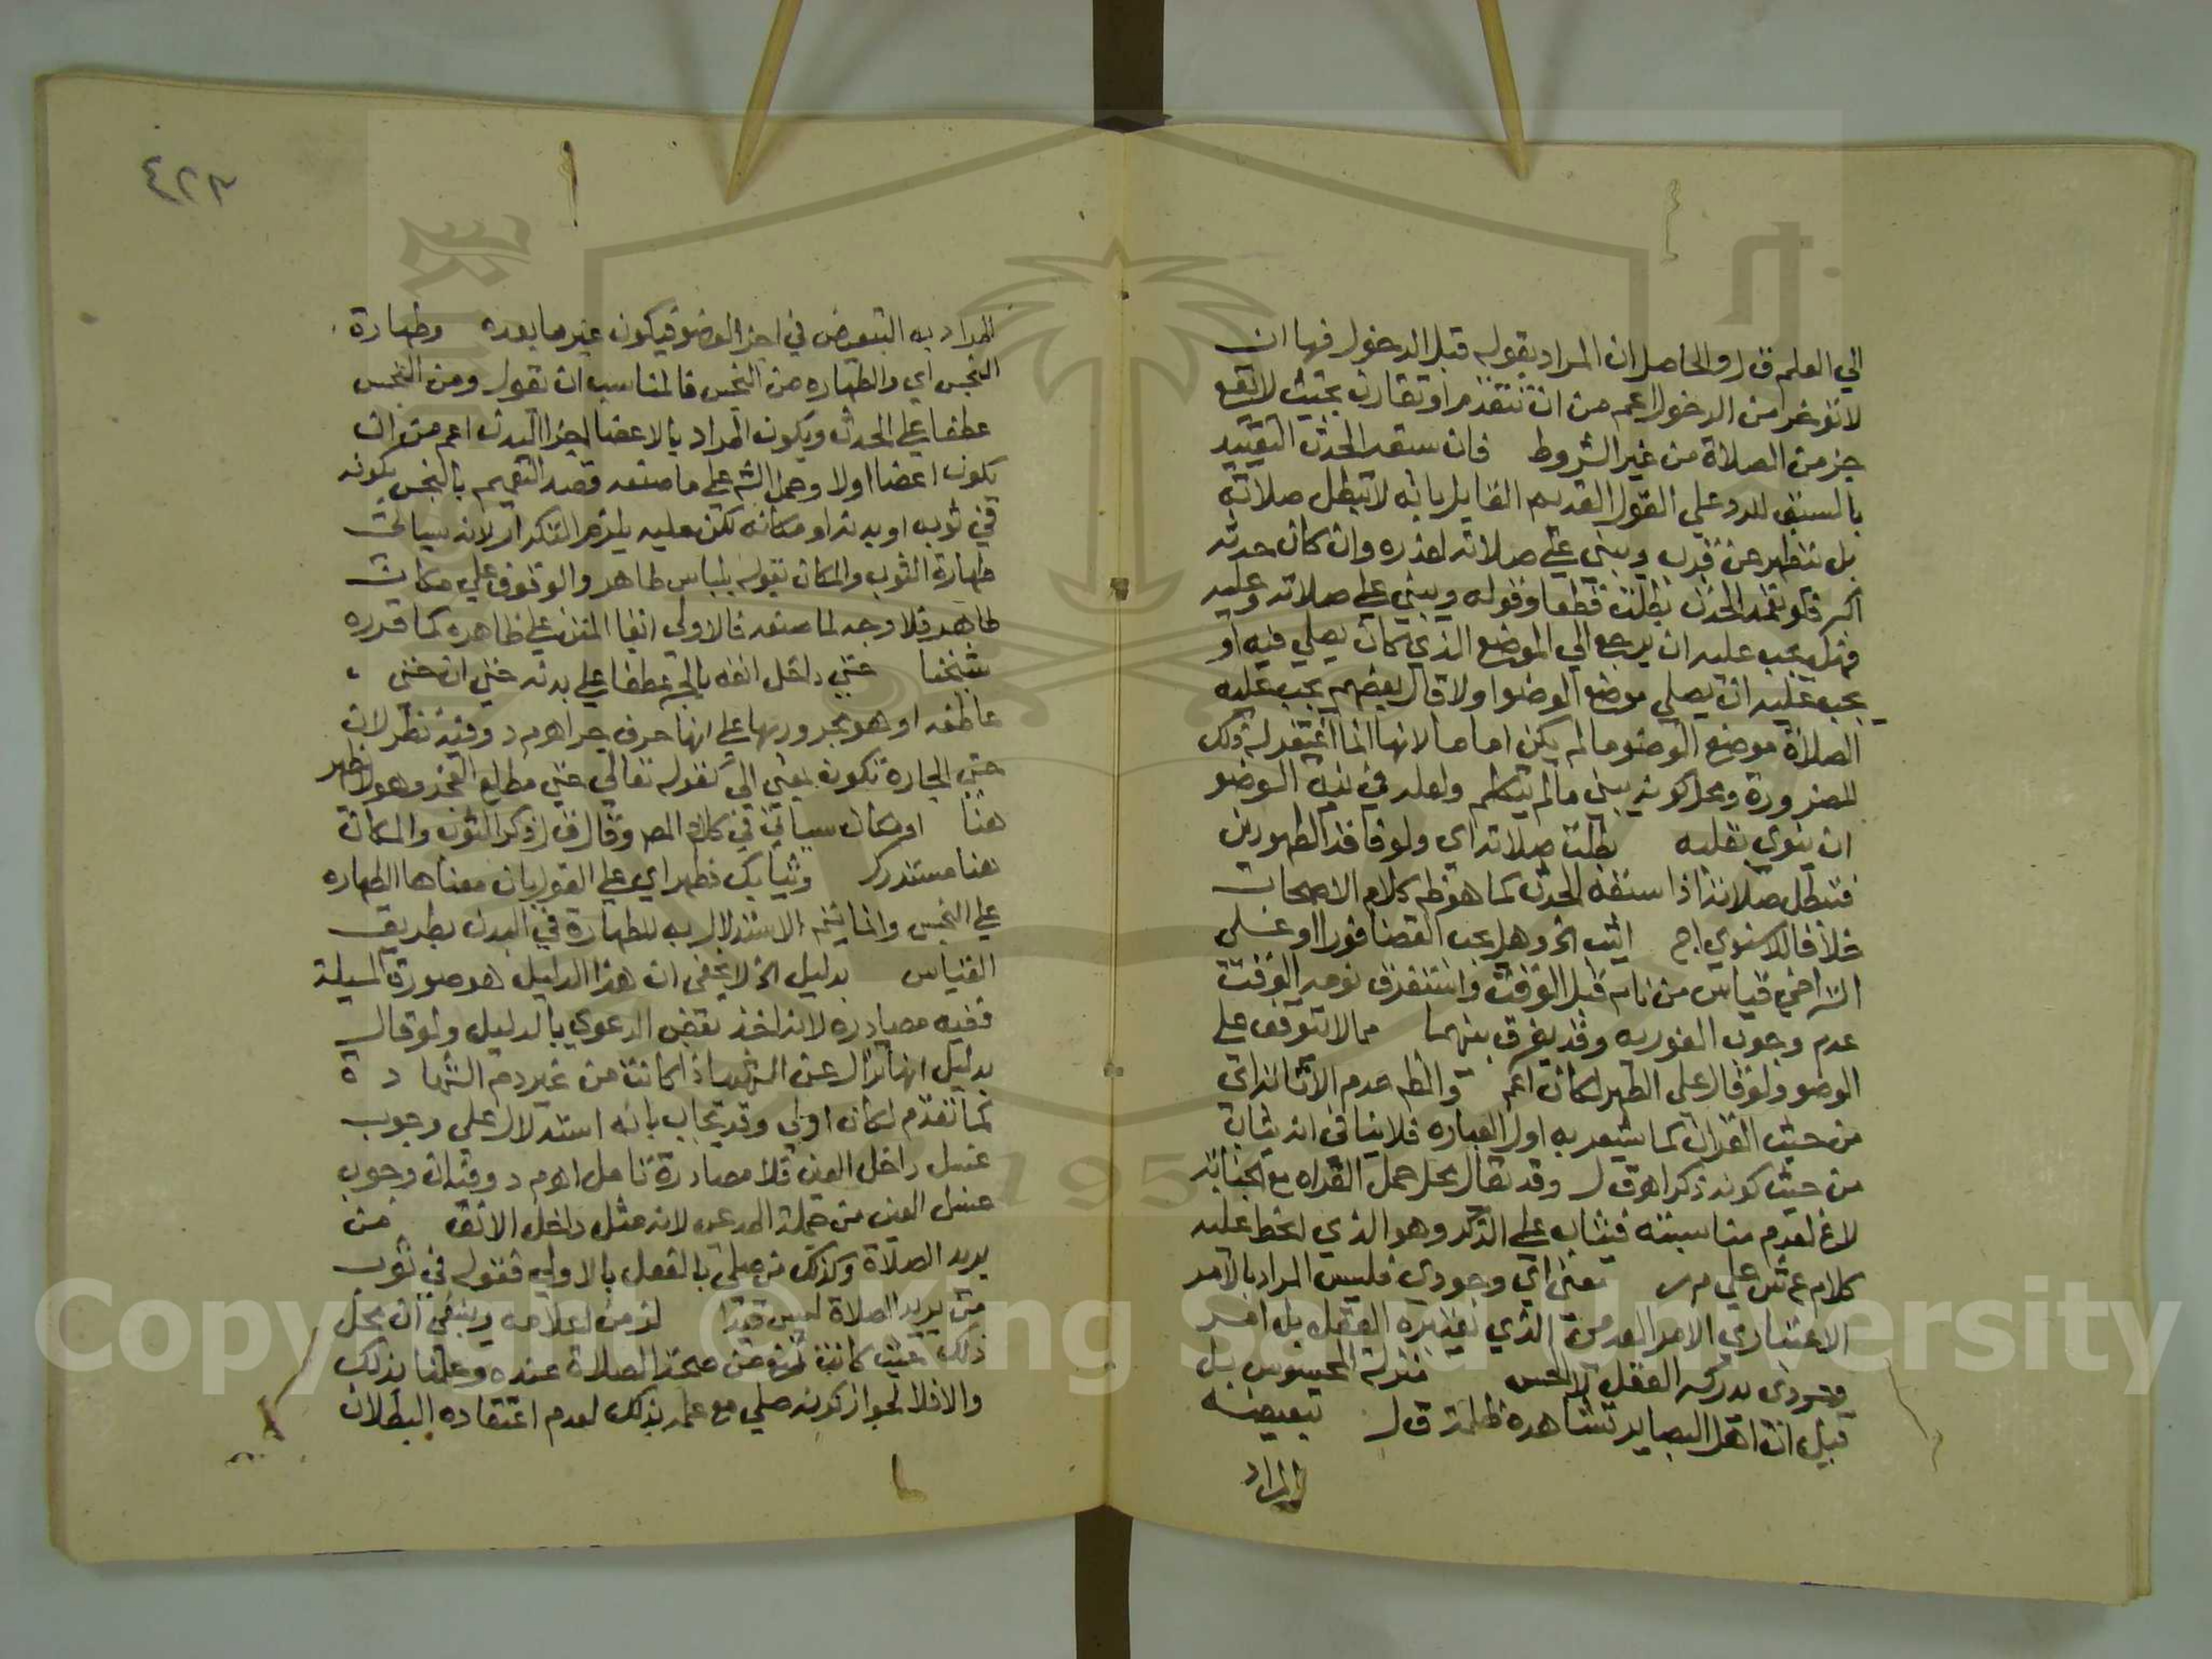 الي العلم ق ل والحاصل ان المراد بقوله قبل الدخول فيها ان
لا تؤخر من الدخول اعم من ان تتقدم او تقارن بحيث لا يقع
جز من الصلاة من غير الشروط فان سبقه الحدث التقييد
بالسبق للرد علي القول القديم القايل بانه لا تبطل صلاته
بل يتطهر عن قرب ويبني علي صلاته لعذره وان كان حدثه
اكبر فلو تعمد الحدث بطلت قطعا وقوله ويبني علي صلاته وعليه
فهل يجب عليه ان يرجع الي الموضع الذي كان يصلي فيه او
يجب عليه ان يصلي موضع الوضوا ولا قال بعضهم يجب عليه
الصلاة موضع الوضو ما لم يكن اماما لانها انما اغتفر له ذلك
للضرورة ومحل كونه يبني ما لم يتكلم ولعله في نية الوضو
ان ينوي بقلبه بطلت صلاته اي ولو فاقد الطهورين
فتبطل صلاته اذا سبقه الحدث كما هو ظ كلام الاصحاب
خلافا للاسنوي اج اثيب الخ وهل يجب القضا فورا او علي
التراخي قياس من نام قبل الوقت واستغرق نومه الوقت
عدم وجوب الفورية وقد يفرق بينهما مما لا يتوقف علي
الوضو ولو قال علي الطهر لكان اعم والظ عدم الاثابة اي
من حيث القران كما يشعر به اول العباره فلا ينافي انه يثاب
من حيث كونه ذكرا اهق ل وقد يقال محل حمل القراه مع الجنابة
لاغ لعدم مناسبته فيثاب علي الذكر وهو الذي انحط عليه
كلام ع ش علي م ر معني اي وجودي فليس المراد بالامر
الاعتباري الامر العدمي الذي يعتبره العقل بل امر
وجودي يدركه العقل لا الحس منزلة المحسوس بل
قيل ان اهل البصاير تشاهده ظلمة ق ل تبعيضية
المراد
٤٢٣
المراد به التبعيض في اجزا الوضو فيكون غير ما بعده وطهارة
النجس اي والطهاره من النجس فالمناسب ان تقول ومن النجس
عطفا علي الحدث ويكون المراد بالاعضا اجزا البدن اعم من ان
يكون اعضا اولا وحمل الش علي ما صنعه قصد التعميم بالنجس بكونه
في ثوب او بدنه او مكانه لكن عليه يلزم التكرار لانه سيأتي
طهارة الثوب والمكان بقوله بلباس طاهر والوقوف علي مكان
طاهر فلا وجه لما صنعه فالاولي ابقا المتن علي ظاهره كما قرره
شيخنا حتي داخل انفه بالجر عطفا علي بدنه حتي ان حتي
عاطفه او هو مجرور بها علي انها حرف جر اهم د وفيه نظر لان
حتي الجارة تكون بمعني الي كقوله تعالي حتي مطلع الفجر وهو لا يظهر
هنا او مكان سيأتي في كلام المص وقال ق ل ذكر الثوب والمكان
هنا مستدرك وثيابك فطهر اي علي القول بان معناها الطهاره
علي النجس وانما يتجه الاستدلال به للطهارة في البدن بطريق
القياس بدليل الخ لا يخفي ان هذا الدليل هو صورة المسيلة
ففيه مصادره لانه اخذ بعض الدعوي بالدليل ولو قال
بدليل انها تزال عن الشهيد اذا كانت من غير دم الشهادة
كما تقدم لكان اولي وقد يجاب بانه استدلال علي وجوب
غسل داخل العين فلا مصادرة تامل اهم د وفيه ان وجوب
غسل العين من جملة المدعي لانه مثل داخل الانف من
يريد الصلاة وكذلك من صلي بالفعل بالاولي فقوله في ثوب
من يريد الصلاة ليس قيدا لزمنا اعلامه وينبغي ان محل
ذلك حيث كانت تمنع من صحة الصلاة عنده وعلمنا بذلك
والا فلا لجواز كونه صلي مع علمه بذلك لعدم اعتقاده البطلان